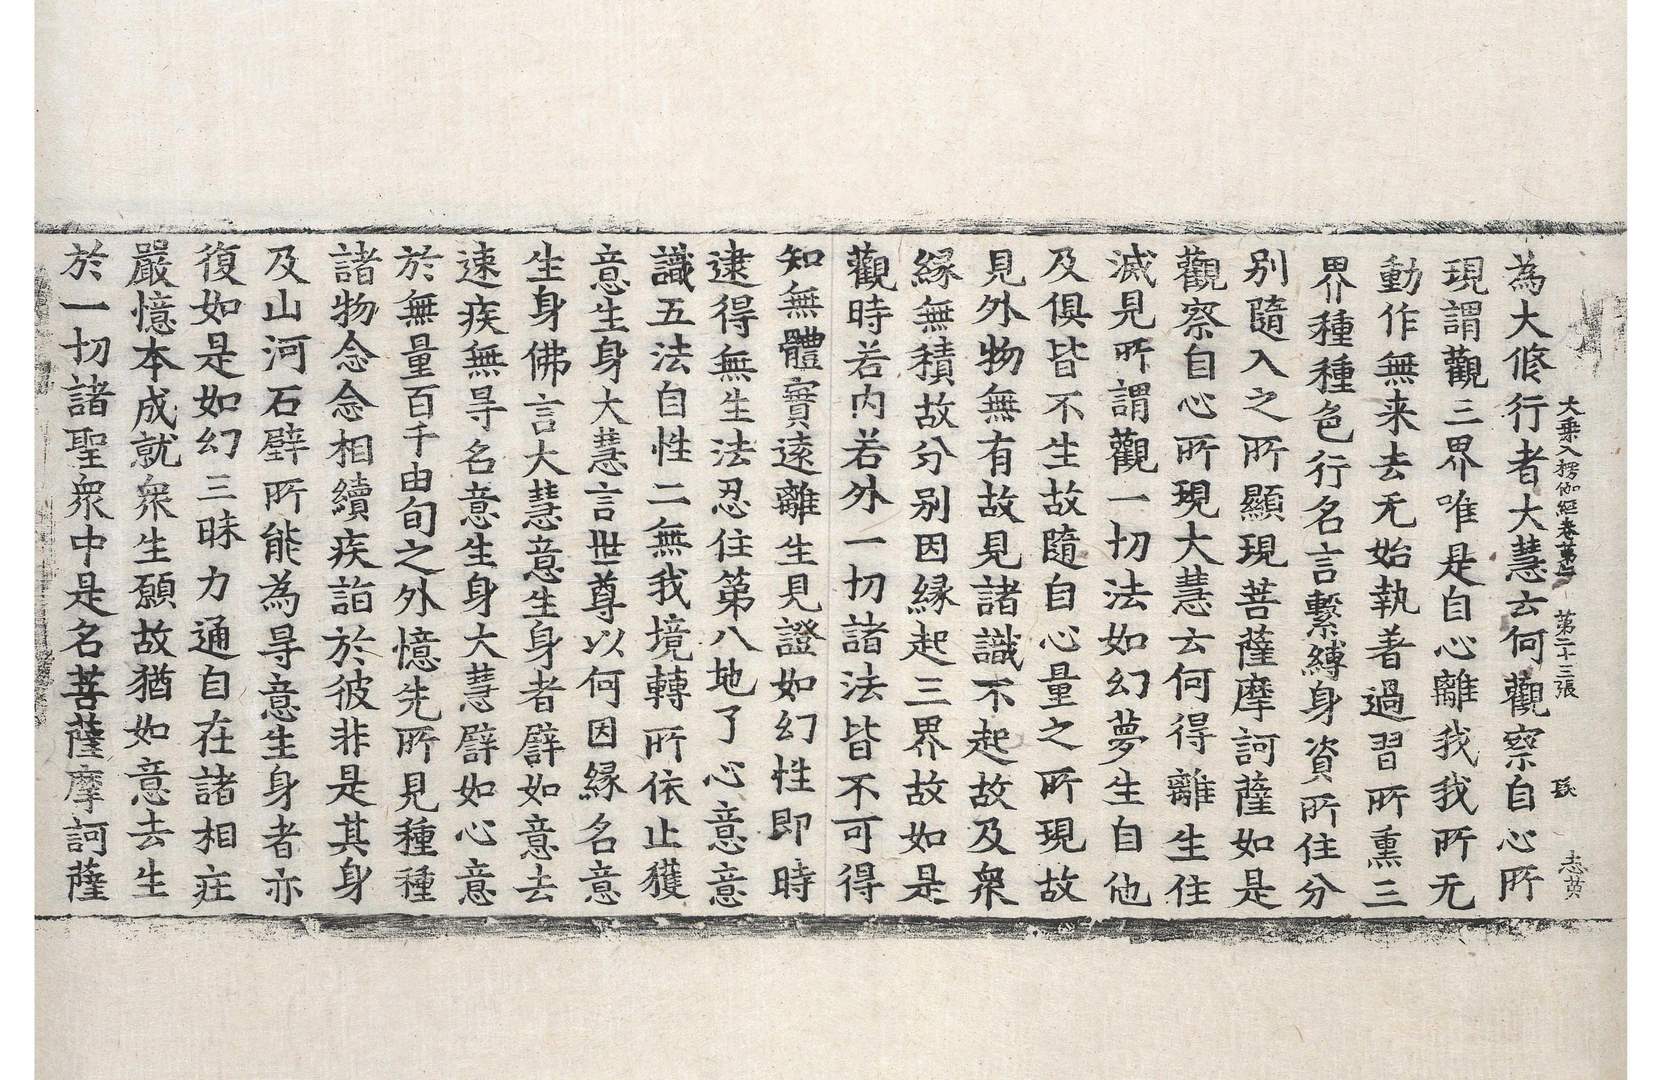 大乗入楞伽經卷第二 第二十三張 㺨 志黄
為大修行者大慧云何觀察自心所
現謂觀三界唯是自心離我我所无
動作無来去无始執著過習所熏三
界種種色行名言繫縛身資所住分
別隨入之所顯現菩薩摩訶薩如是
觀察自心所現大慧云何得離生住
滅見所謂觀一切法如幻夢生自他
及俱皆不生故隨自心量之所現故
見外物無有故見諸識不起故及衆
緣無積故分別因緣起三界故如是
觀時若內若外一切諸法皆不可得
知無體實遠離生見證如幻性即時
逮得無生法忍住第八地了心意意
識五法自性二無我境轉所依止獲
意生身大慧言世尊以何因緣名意
生身佛言大慧意生身者譬如意去
速疾無㝵名意生身大慧譬如心意
於無量百千由旬之外憶先所見種種
諸物念念相續疾詣於彼非是其身
及山河石壁所能為㝵意生身者亦
復如是如幻三昧力通自在諸相莊
嚴憶本成就衆生願故猶如意去生
於一切諸聖衆中是名菩薩摩訶薩